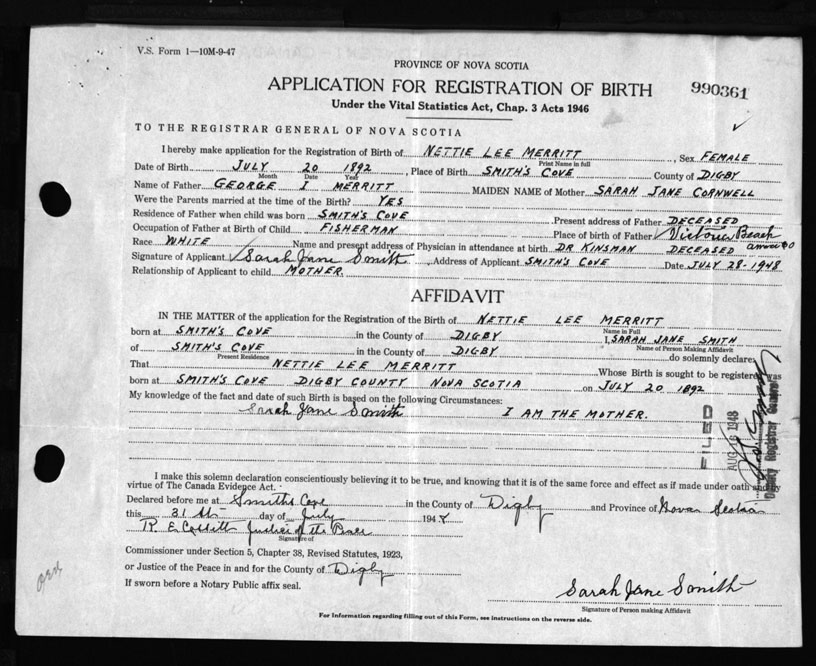 V.S. Form 1—10M-9-47
PROVINCE OF NOVA SCOTIA
APPLICATION FOR REGISTRATION OF BIRTH
990361
Under the Vital Statistics Act, Chap. 3 Acts 1946
TO THE REGISTRAR GENERAL OF NOVA SCOTIA
I hereby make application for the Registration of Birth of NETTIE LEE MERRITT, Sex FEMALE
Print Name in full
Date of Birth JULY 20 1892, Place of Birth SMITH'S COVE County of DIGBY
Month Date Year
Name of Father GEORGE I MERRITT MAIDEN NAME of Mother SARAH JANE CORNWELL
Were the Parents married at the time of the Birth? YES
Residence of Father when child was born SMITH'S COVE Present address of Father DECEASED
Occupation of Father at Birth of Child FISHERMAN Place of birth of Father Victoria Beach
Race WHITE Name and present address of Physician in attendance at birth DR KINSMAN DECEASED
Signature of Applicant Sarah Jane Smith, Address of Applicant SMITH'S COVE Date JULY 28-1948
Relationship of Applicant to child MOTHER
AFFIDAVIT
IN THE MATTER of the application for the Registration of the Birth of NETTIE LEE MERRITT
Name in Full
born at SMITH'S COVE in the County of DIGBY I, SARAH JANE SMITH
Name of Person Making Affidavit
of SMITH'S COVE in the County of DIGBY do solemnly declare:
Present Residence
That NETTIE LEE MERRITT Whose Birth is sought to be registered was
born at SMITH'S COVE DIGBY COUNTY NOVA SCOTIA on JULY 20 1892
My knowledge of the fact and date of such Birth is based on the following Circumstances:
Sarah Jane Smith I AM THE MOTHER.
FILED
AUG 16 1948
Deputy Registrar General
I make this solemn declaration conscientiously believing it to be true, and knowing that it is of the same force and effect as if made under oath and by
virtue of The Canada Evidence Act.
Declared before me at Smiths Cove in the County of Digby and Province of Nova Scotia
this 31 st day of July 1948
R. E. Cossitt Justice of the Peace
Signature of
Commissioner under Section 5, Chapter 38, Revised Statutes, 1923,
or Justice of the Peace in and for the County of Digby
If sworn before a Notary Public affix seal.
Sarah Jane Smith
Signature of Person making Affidavit
For Information regarding filling out of this Form, see instructions on the reverse side.